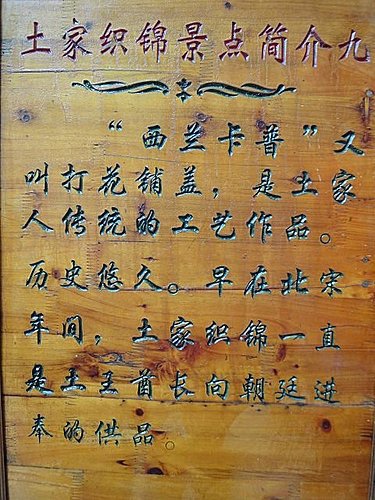 土家织锦景点简介九
“西兰卡普”又
叫打花铺盖，是土家
人传统的工艺作品。
历史悠久。早在北宋
年间，土家织锦一直
是土王酋长向朝廷进
奉的供品。